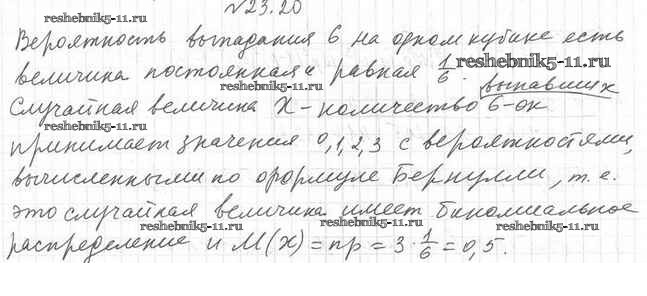 №23.20
reshebnik5-11.ru
Вероятность выпадания 6 на одном кубике есть
reshebnik5-11.ru
величина постоянная и равная 1/6. reshebnik5-11.ru
выпавших
Случайная величина X – количество 6-ок
reshebnik5-11.ru reshebnik5-11.ru
принимает значения 0,1,2,3 с вероятностями,
вычисленными по формуле Бернулли, т.е.
это случайная величина имеет биномиальное
reshebnik5-11.ru reshebnik5-11.ru reshebnik5-11.ru
распределение и M(x) = np = 3·1/6 = 0,5.